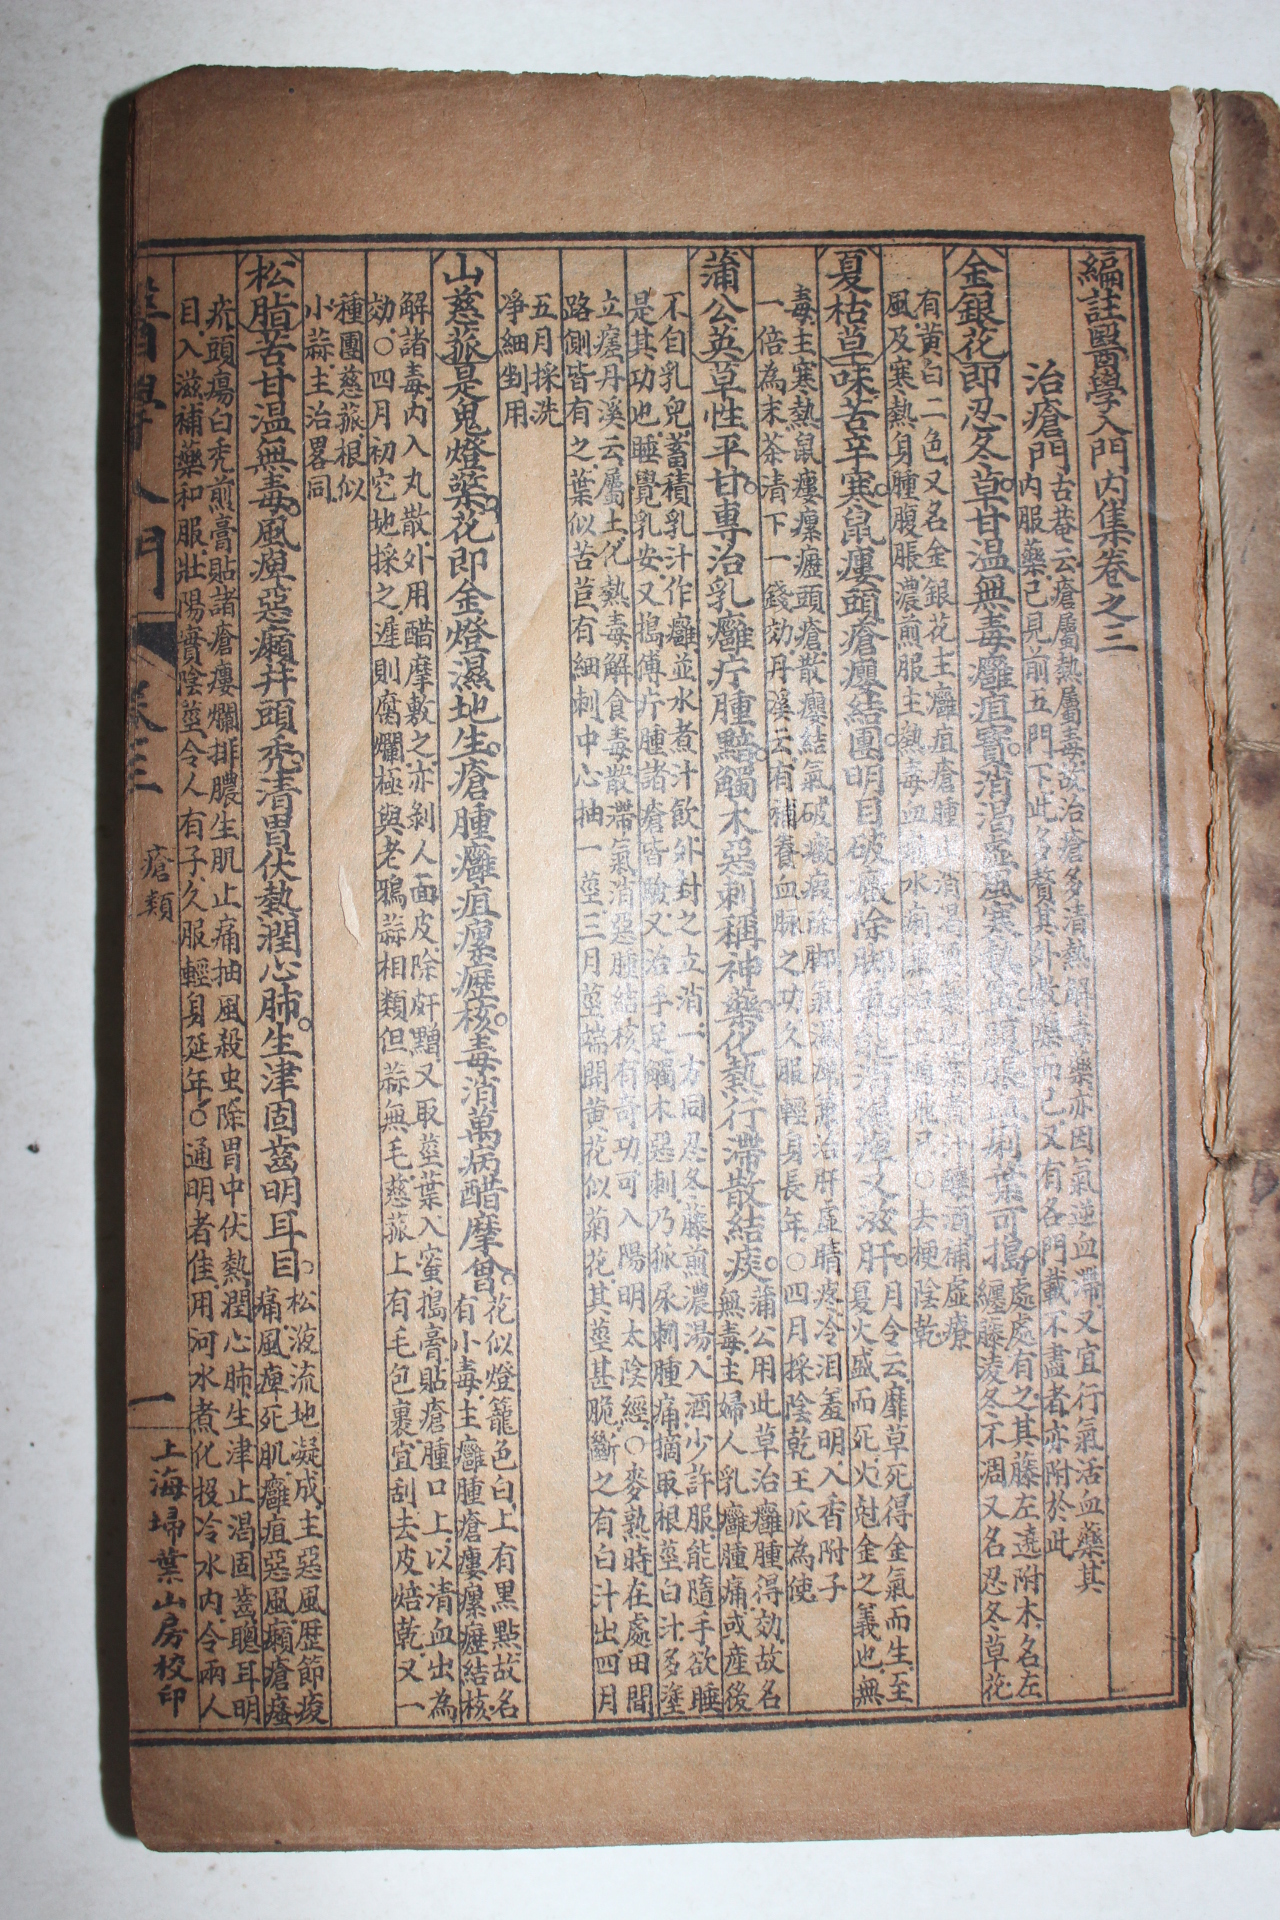 編註醫學入門内集卷之三
治瘡門
古菴云瘡屬熱屬毒故治瘡多清熱解毒藥亦因氣逆血滯又宜行氣活血藥其
内服藥已見前五門下此多贅其外敷 而已又有各門載不盡者亦附於此
金銀花即忍冬草甘溫無毒癰疽寶消渴虛風寒熱 脹血痢葉可搗
處處有之其藤左遶附木名左
纏藤淩冬不凋又名忍冬草花
有黃白二色又名金銀花主癰疽瘡腫 消渴 煮汁釀酒補虛療
風及寒熱身腫腹脹濃煎服主熱毒血 水痢 〇去梗陰乾
夏枯草味苦辛寒鼠瘻頭瘡癭結團明目破癥除脚 濕 痺又滋肝
月令云靡草死得金氣而生至
夏火盛而死火尅金之義也無
毒主寒熱鼠瘻瘰癧頭瘡散癭結氣破癥瘕除脚氣濕痺兼治肝虛睛疼冷泪羞明入香附子
一倍為末茶清下一錢効丹溪云有補養血脉之功久服輕身長年〇四月採陰乾王瓜為使
蒲公英草性平甘專治乳癰疔腫黯觸木惡刺稱神藥化熱行滯散結痰
蒲公用此草治癰腫得効故名
無毒主婦人乳癰腫痛或產後
不自乳兒蓄積乳汁作癰並水煮汁飲外封之立消一方同忍冬藤煎濃湯入酒少許服能隨手欲睡
是其功也睡覺乳安又搗傅疔腫諸瘡皆驗又治手足觸木惡刺乃狐尿刺腫痛摘取根莖白汁多塗
立瘥丹溪云屬土化熱毒解食毒散滯氣消惡腫結核有奇功可入陽明太陰經〇麥熟時在處田間
路側皆有之葉似苦苣有細刺中心抽一莖三月莖端開黃花似菊花其莖甚脆斷之有白汁出四月
五月採洗
净細剉用
山慈菰是鬼燈檠花即金燈濕地生瘡腫癰疽瘰癧核毒消萬病醋摩曾
花似燈籠色白上有黑點故名
有小毒主癰腫瘡瘻瘰癧結核
解諸毒内入丸散外用醋摩敷之亦剝人面皮除皯䵳又取莖葉入蜜搗膏貼瘡腫口上以清血出為
効〇四月初空地採之遲則腐爛極與老鴉蒜相類但蒜無毛慈菰上有毛包裹宜刮去皮焙乾又一
種團慈菰根似
小蒜主治畧同
松脂苦甘溫無毒風痺惡癩并頭禿清胃伏熱潤心肺生津固齒明耳目
松液流地凝成主惡風歷節痠
痛風痺死肌癰疽惡風癩瘡瘙
疥頭瘍白禿煎膏貼諸瘡瘻爛排膿生肌止痛抽風殺虫除胃中伏熱潤心肺生津止渴固齒聰耳明
目入滋補藥和服壯陽實陰莖令人有子久服輕身延年〇通明者佳用河水煮化投冷水内令兩人
醫學入門
卷三
瘡類
一
上海埽葉山房校印